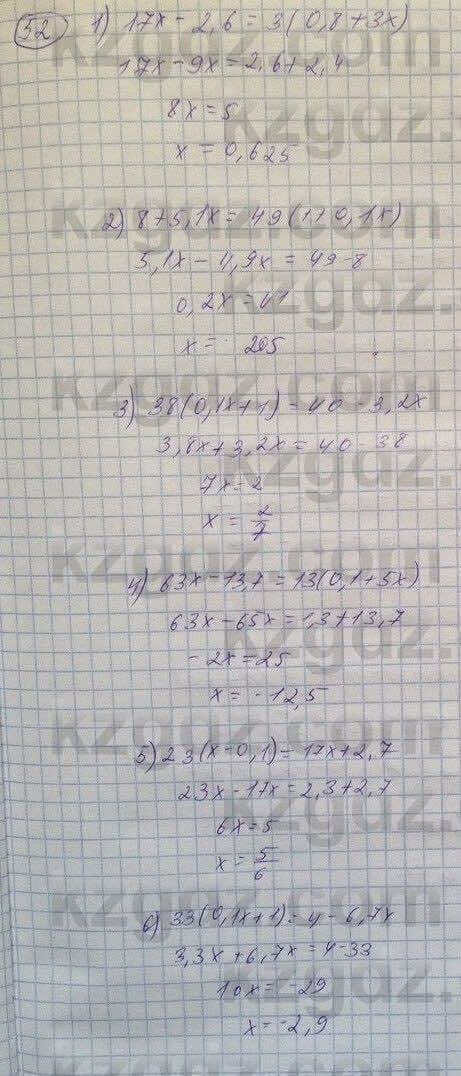 52 1) 17x - 2,6 = 3(0,8+3x)
17x-9x=2,6+2,4
8x=5
x = 0,625
2) 8+5,1x= 49(1+0,1x)
5,1x - 4,9x = 49-8
0,2x=41
x= 205
3) 38(0,1x+1) = 40 - 3,2x
3,8x+3,2x=40-38
7x=2
x = 2/7
4) 63x-13,7 =13(0,1+5x)
63x-65x=1,3+13,7
-2x=25
x= -12,5
5) 23(x-0,1)=17x+2,7
23x-17x=2,3+2,7
6x=5
x= 5/6
6) 33(0,1x+1)=4-6,7x
3,3x+6,7x=4-33
10x=-29
x=-2,9
kzgdz.com